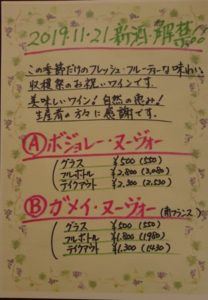 2019.11.21 新酒解禁
この季節だけのフレッシュ・フルーティーな味わい
収穫祭のお祝いワインです。
美味しいワイン！自然の恵み！
生産者の方々に感謝です。
Ⓐボジョレー・ヌーヴォー
グラス ¥500 (550)
フルボトル ¥2,800 (3,080)
テイクアウト ¥2,300 (2,530)
Ⓑガメイ・ヌーヴォー (南フランス)
グラス ¥500 (550)
フルボトル ¥1,800 (1980)
テイクアウト ¥1,300 (1430)